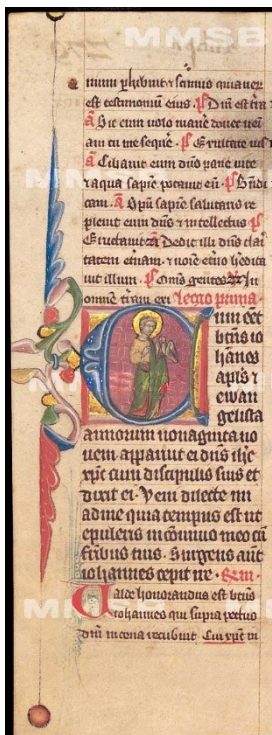 MMSB
est testimoniū eius. p̄ Dn̄i est t̄ra
A Sic eum volo manē donec veni
am tu me seqr̄e. p̄ Eructavit
A Cibavit eum dn̄s pane vite
⁊ aqua sapiē potavit eū. p̄
A Apīu sapiē salutaris re
plevit eum dn̄s ⁊ intellectus p̄
Eructavit Dedit illi dn̄s clari
tatem etnam. ⁊ noīe etno hedita
vit illum. p̄ Om̄s gentes In
omnē tiram exi Lectio prima.
Cum eēt
bt̄us io
hānes
apl̄s ⁊
ewan
gelista
annorum nonaginta no
vem apparuit ei dn̄s ihc
xp̄c cum discipulis suis et
dixit ei. Veni dilecte mi
ad me quia tempus est ut
epuleris in cōvivio meo cū
fr̄ibus tuis. Surgens aūt
iohannes cepit ire.
Valde honorandus est bt̄us
iohannes qui supra pectus
dn̄i in cena recubuit Cui xp̄c in